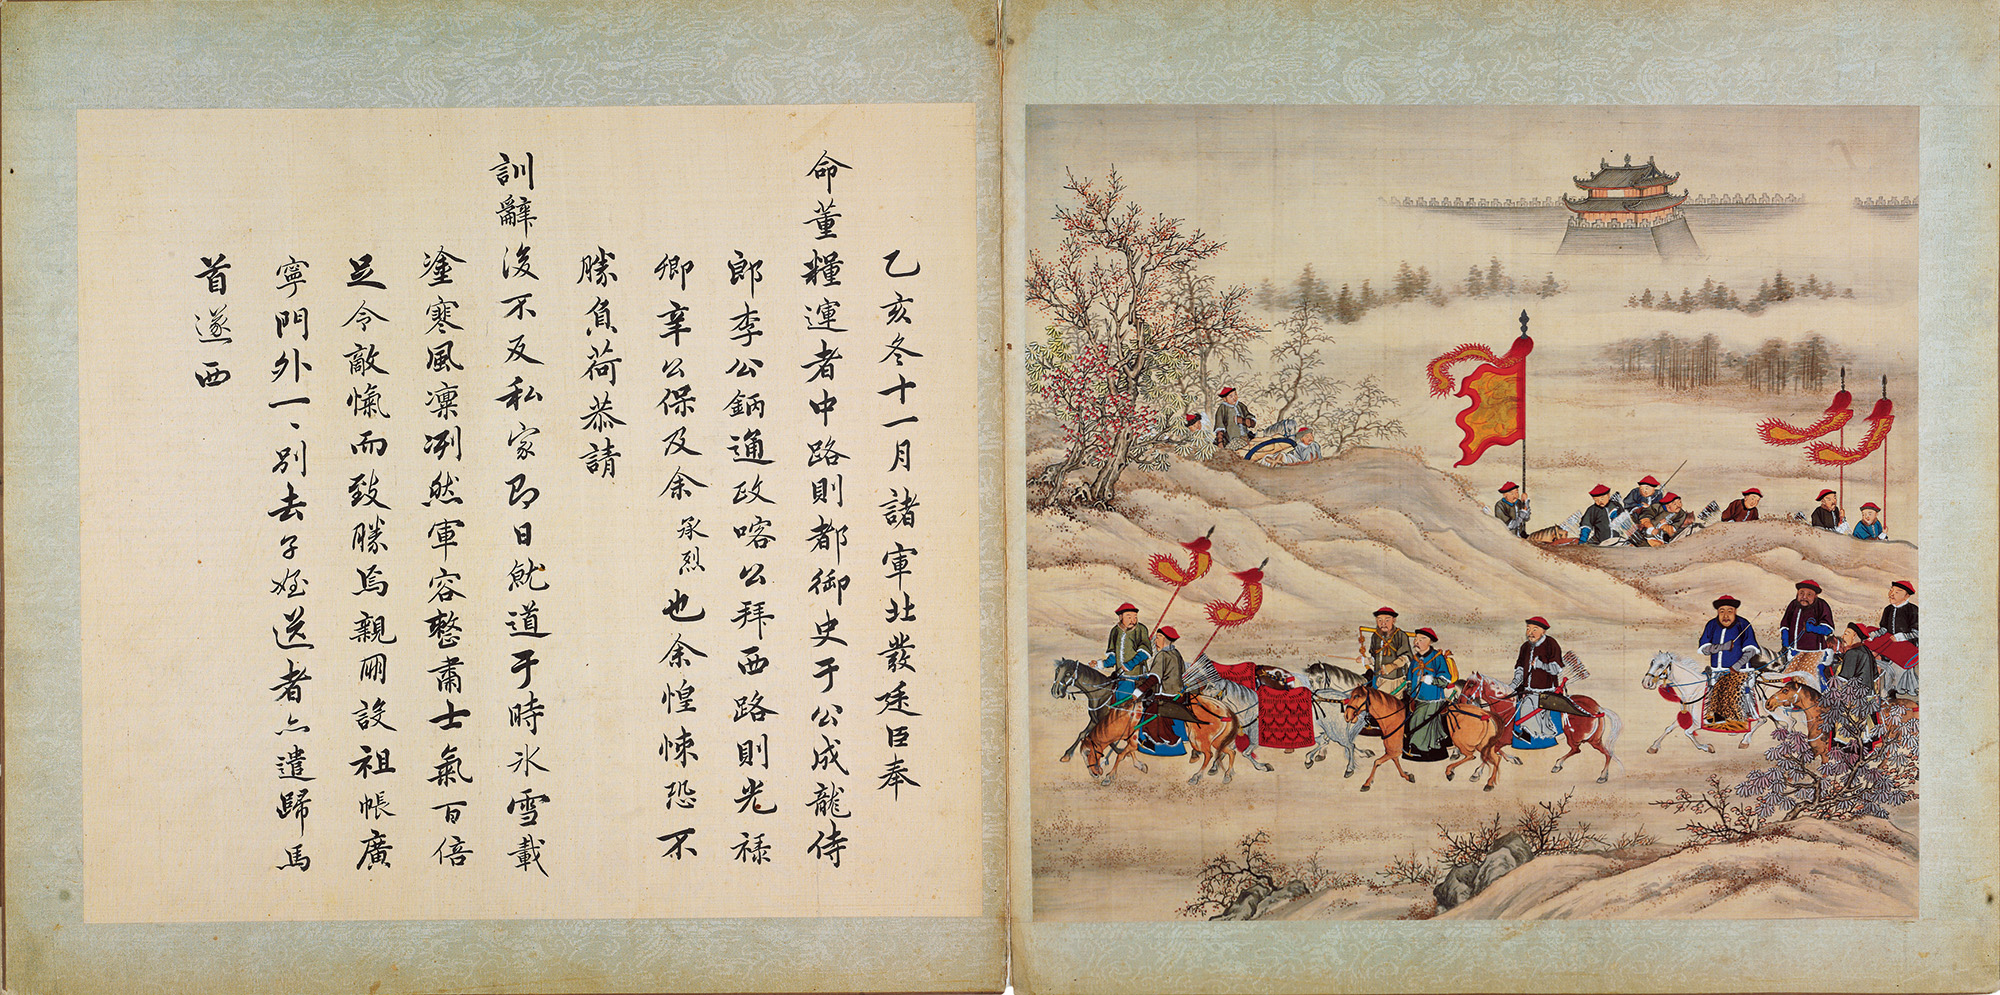 乙亥冬十一月諸軍北發廷臣奉
命董糧運者中路則都御史于公成龍侍
郎李公鈵通政喀公拜西路則光禄
卿辛公保及余承烈也余惶悚恐不
勝負荷恭請
訓辭後不及私家即日就道于時氷雪載
塗寒風凜冽然軍容整肅士氣百倍
足令敵愾而致勝焉親朋設祖帳廣
寧門外一〻別去子姪送者亦遣歸馬
首遂西